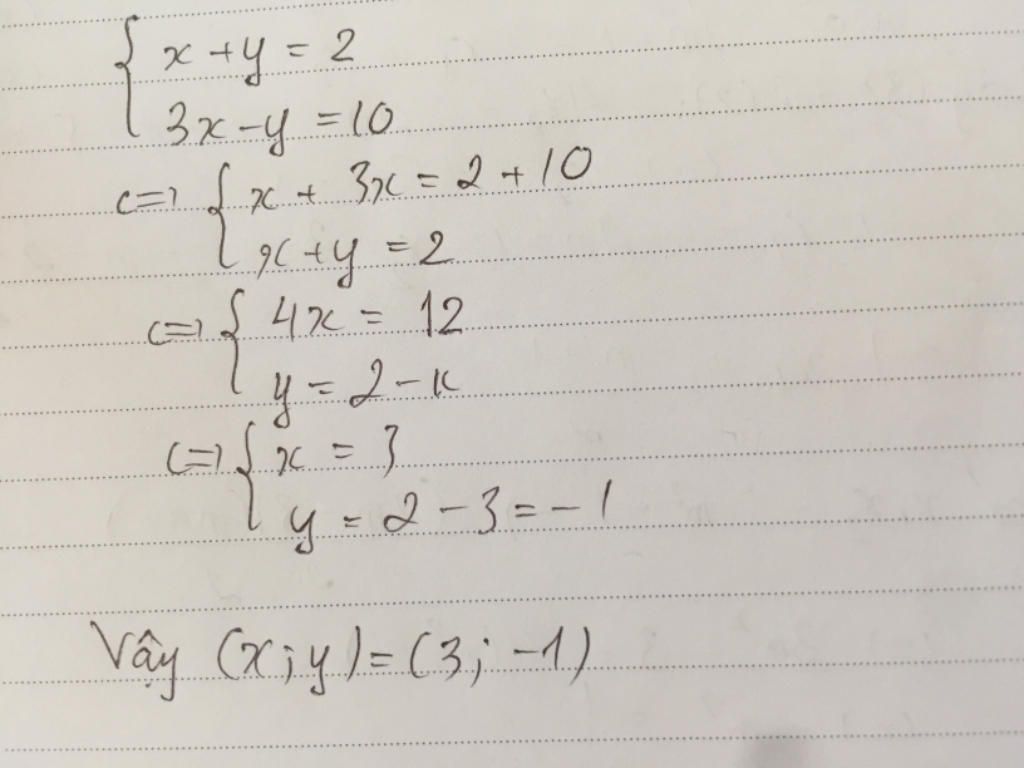 { x + y = 2
3x - y = 10
<=> { x + 3x = 2 + 10
x + y = 2
<=> { 4x = 12
y = 2 - x
<=> { x = 3
y = 2 - 3 = -1
Vậy (x; y) = (3; -1)